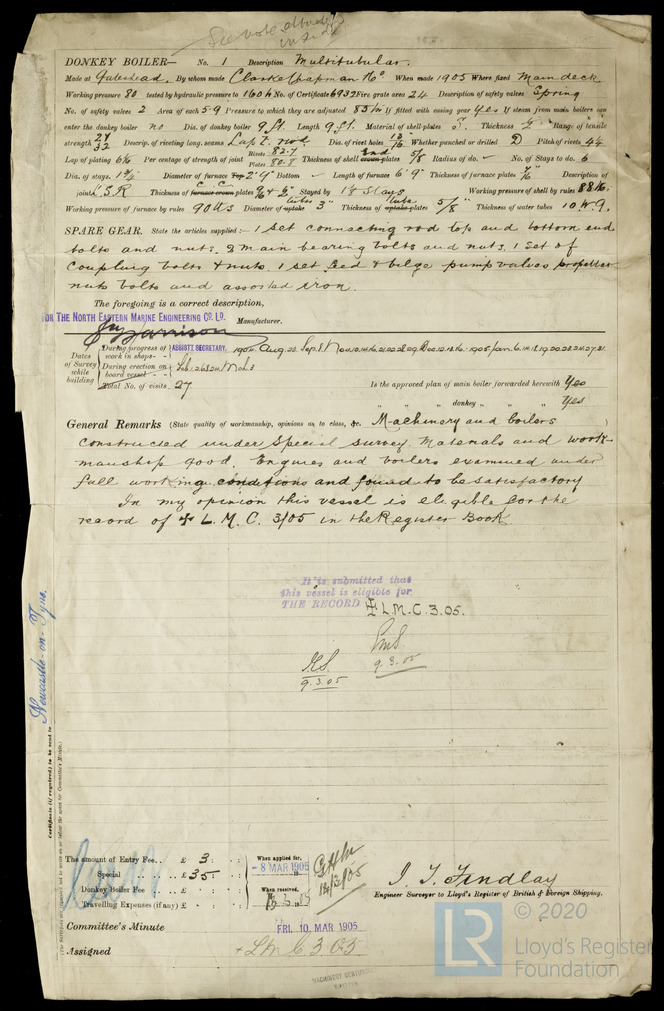 See note attached
inside
DONKEY BOILER— No. 1 Description Multitubular.
Made at Gateshead. By whom made Clarke Chapman & Co. When made 1905 Where fixed Main deck
Working pressure 80 tested by hydraulic pressure to 160 lbs No. of Certificate 6932 Fire grate area 24 Description of safety valves Spring
No. of safety valves 2 Area of each 5.9 Pressure to which they are adjusted 83 lbs If fitted with easing gear yes If steam from main boilers can
enter the donkey boiler no Dia. of donkey boiler 9 ft. Length 9 ft. Material of shell plates S. Thickness Range of tensile
strength 28/32 Descrip. of riveting long. seams Lap t. riv'd Dia. of rivet holes 13/16 Whether punched or drilled D Pitch of rivets 4 1/4
Lap of plating 6 1/2 Per centage of strength of joint Rivets 82.7 Plates 80.8 Thickness of shell end plates 5/8 Radius of do. - No. of Stays to do. 6
Dia. of stays. 1 3/4 Diameter of furnace Top 2'9" Bottom - Length of furnace 6' 9" Thickness of furnace plates Description of
joint L.S.R Thickness of furnace crown C.C. plates 9/16 & 1/2" Stayed by 1 3/8 Stays Working pressure of shell by rules 88 lbs.
Working pressure of furnace by rules 90 lbs Diameter of uptake tubes 3" Thickness of uptake tube plates 5/8" Thickness of water tubes 10 W.G.
SPARE GEAR. State the articles supplied:— 1 set connecting rod top and bottom end
bolts and nuts. 2 main bearing bolts and nuts. 1 set of
coupling bolts & nuts. 1 set feed & bilge pump valves propeller
nuts bolts and assorted iron.
The foregoing is a correct description,
FOR THE NORTH EASTERN MARINE ENGINEERING CO. LD.
Harrison Manufacturer.
ASSISTT SECRETARY.
Dates of Survey while building
During progress of work in shops - - 1904. Aug. 22. Sep. 8. Nov. 10. 14. 16. 21. 22. 28. 29. Dec. 12. 13. 16. 1905 Jan. 6. 14. 18. 19. 20. 23. 24. 27. 31.
During erection on board vessel - - - Feb. 1. 2. 6. 8. 24. Mch. 3
Total No. of visits 27
Is the approved plan of main boiler forwarded herewith Yes
" " " donkey " " " Yes
General Remarks (State quality of workmanship, opinions as to class, &c. Machinery and boilers
constructed under Special survey. Materials and work-
manship good. Engines and boilers examined under
full working conditions and found to be satisfactory
In my opinion this vessel is eligible for the
record of ✠ L.M.C. 3/05 in the Register Book
It is submitted that
this vessel is eligible for
THE RECORD ✠ L.M.C. 3.05.
9.3.05
9.3.05
Newcastle-on-Tyne.
Certificate (if required) to be sent to
The amount of Entry Fee.. £ 3 : :
Special .. £ 35 : :
Donkey Boiler Fee .. £ : :
Travelling Expenses (if any) £ : :
When applied for,
- 8 MAR 1905
When received,
J. T. Findlay
Engineer Surveyor to Lloyd's Register of British & Foreign Shipping.
Committee's Minute FRI. 10 MAR 1905
Assigned + LMC 3.05
© 2020
LR
Lloyd's Register
Foundation